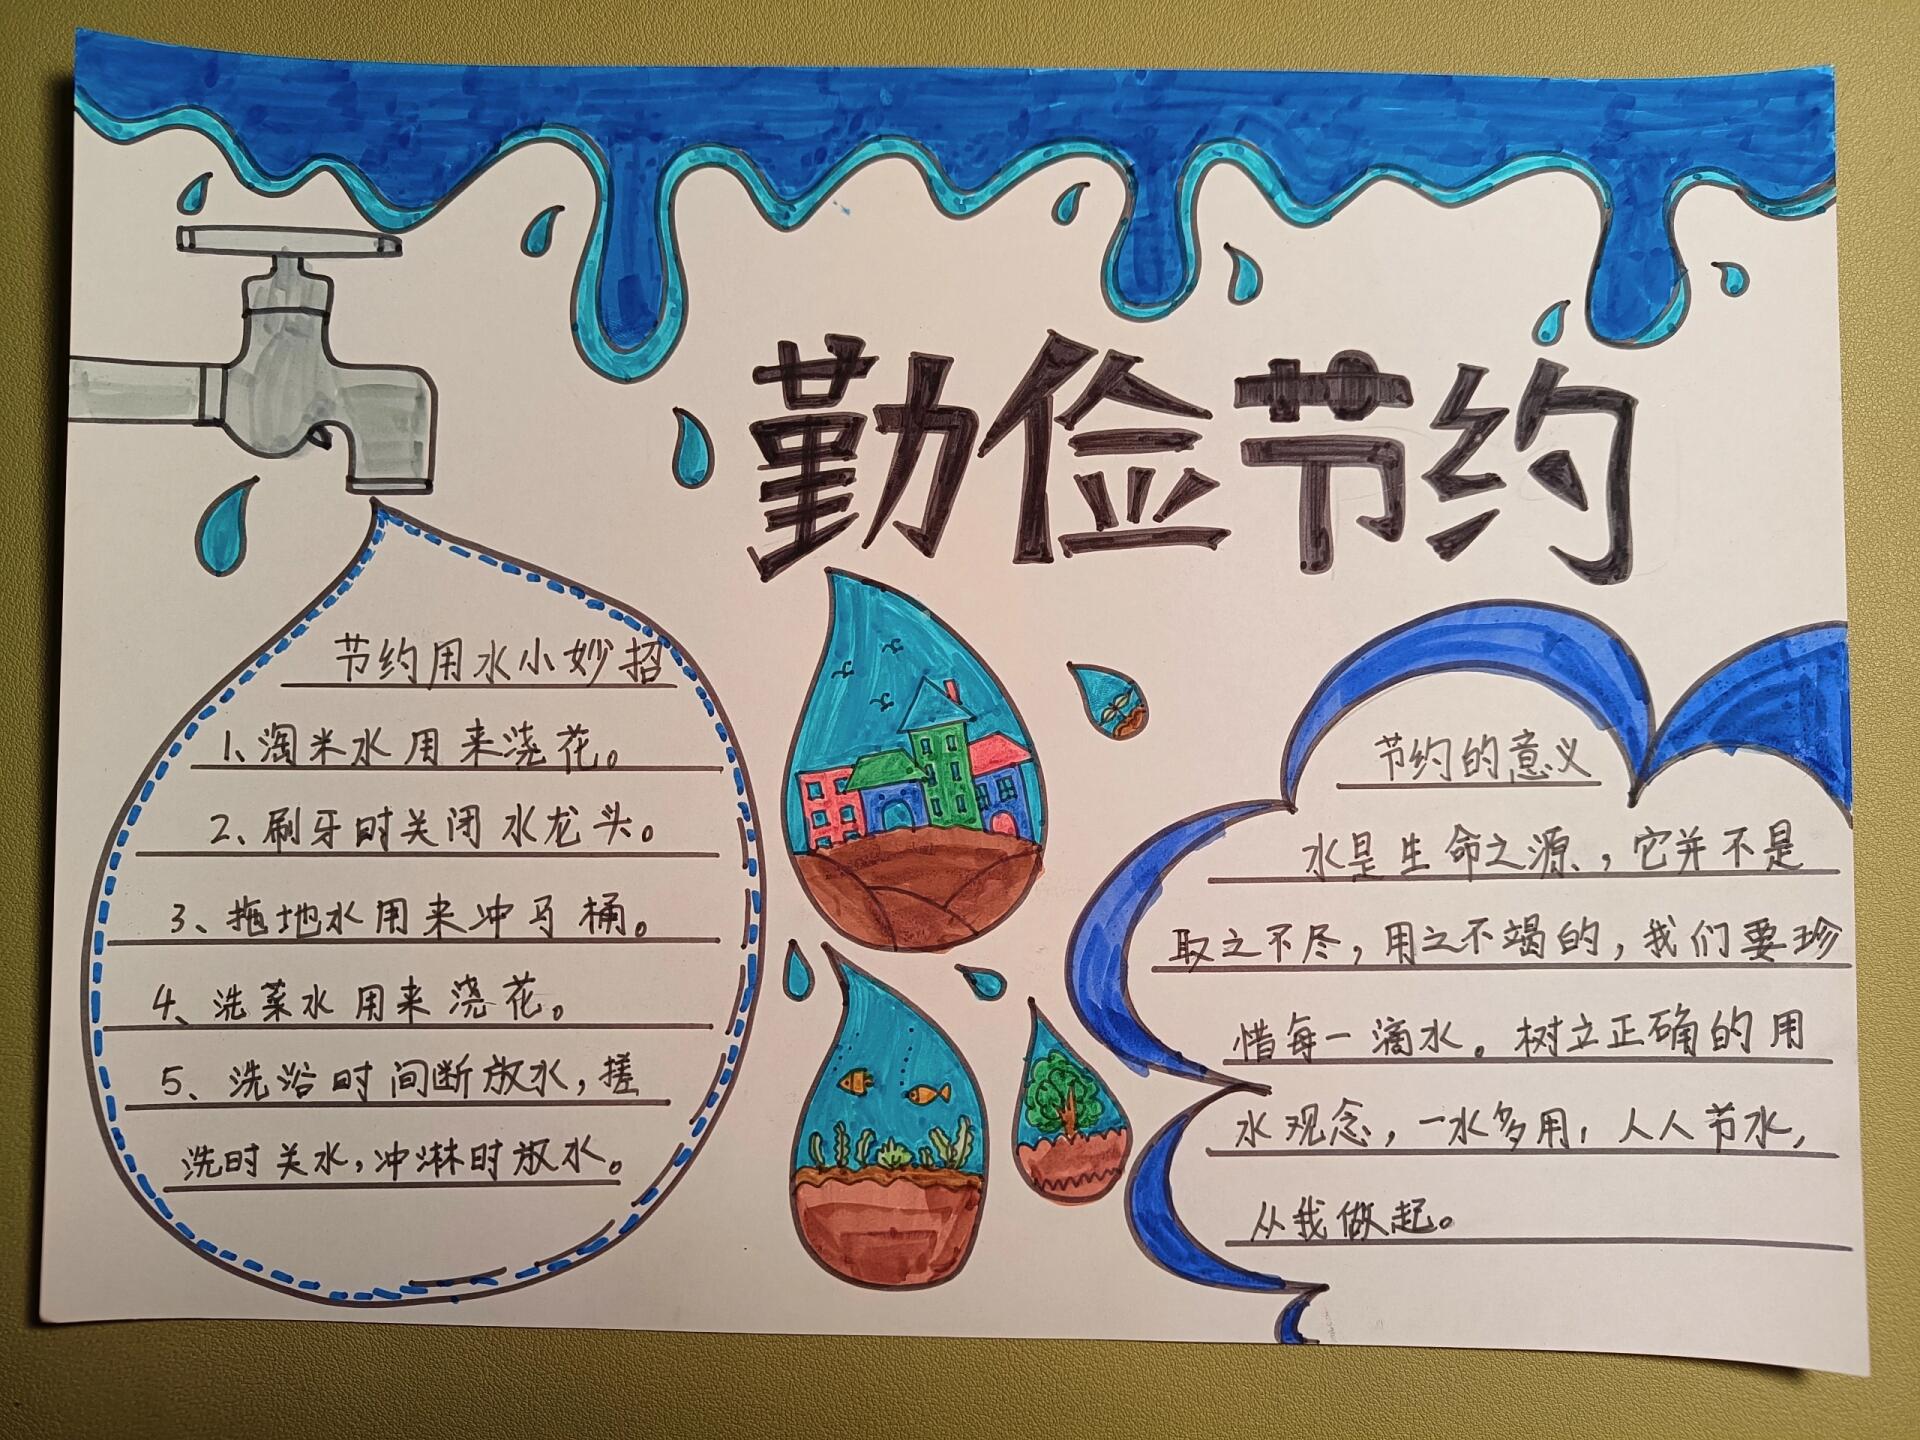 勤俭节约
节约用水小妙招
1、淘米水用来浇花。
2、刷牙时关闭水龙头。
3、拖地水用来冲马桶。
4、洗菜水用来浇花。
5、洗浴时间断放水，搓
洗时关水，冲淋时放水。
节约的意义
水是生命之源，它并不是
取之不尽，用之不竭的，我们要珍
惜每一滴水。树立正确的用
水观念，一水多用，人人节水，
从我做起。